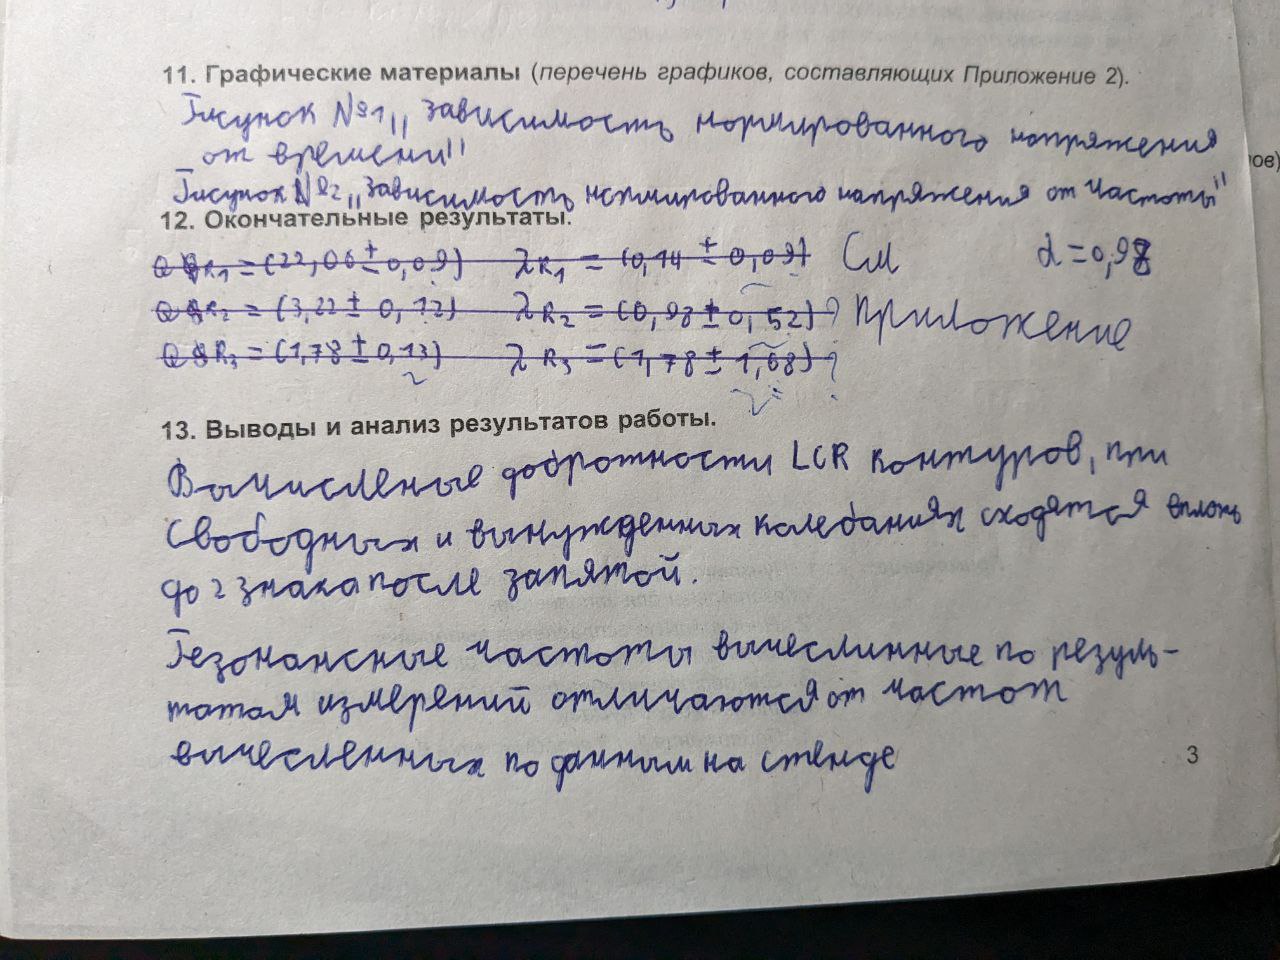 11. Графические материалы (перечень графиков, составляющих Приложение 2).
Рисунок №1 „ зависимость нормированного напряжения
от времени"
ов)
Рисунок №2 „зависимость нормированного напряжения от частоты"
12. Окончательные результаты.
R₁ = (22,06 ± 0,09) λR₁ = (0,14 ± 0,09) См α = 0,98
R₂ = (3,22 ± 0,12) λR₂ = (0,98 ± 0,52)? Приложение
R₃ = (1,78 ± 0,13) λR₃ = (1,78 ± 1,68)?
13. Выводы и анализ результатов работы.
Вычисленые добротности LCR контуров, при
свободных и вынужденных колебаниях сходятся вплоть
до 2 знака после запятой.
Резонансные частоты вычеслинные по резуль-
татам измерений отличаются от частот
вычесленных по данным на стенде
3